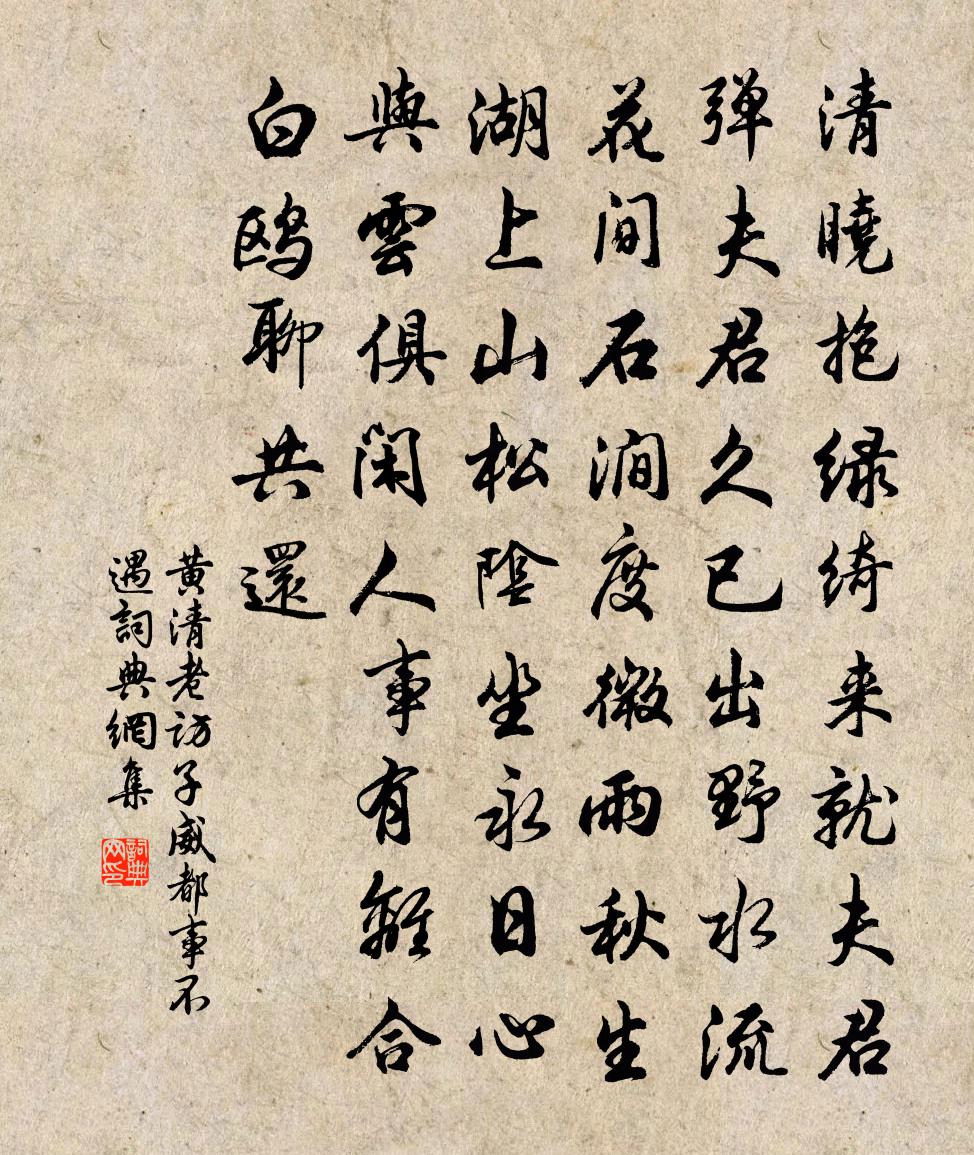 清曉抱緑綺来就夫君
弾夫君久已出野水流
花间石澗度微雨秋生
湖上山松陰坐永日心
與雲俱闲人事有離合
白鸥聊共還
黄清老访子威都事不
遇詞典網集
詞典网印